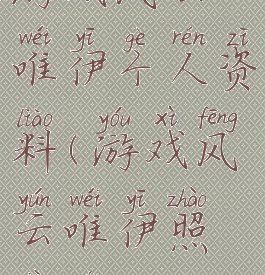 wéi yī ge rén zī
唯伊个人资
liào yóu xì fēng
料(游戏风
yún wéi yī zhào
云唯伊照